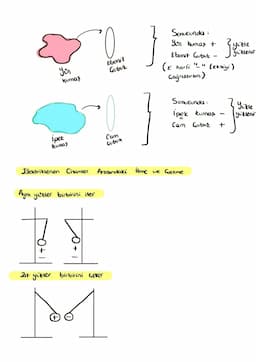 Sonucunda:
Yün kumaş +
Ebonit Çubuk -
yükle
yüklenir
(E harfi "-" (eksiyi)
çağrıştırır)
Yün
kumaş
Ebonit
Çubuk
Sonucunda:
İpek kumaş -
Cam Çubuk +
yükle
yüklenir
İpek
kumaş
Cam
Çubuk
Elektriklenen Cisimler Arasındaki İtme ve Çekme
Aynı yükler birbirini iter
+ +
- -
Zıt yükler birbirini çeker
+ -